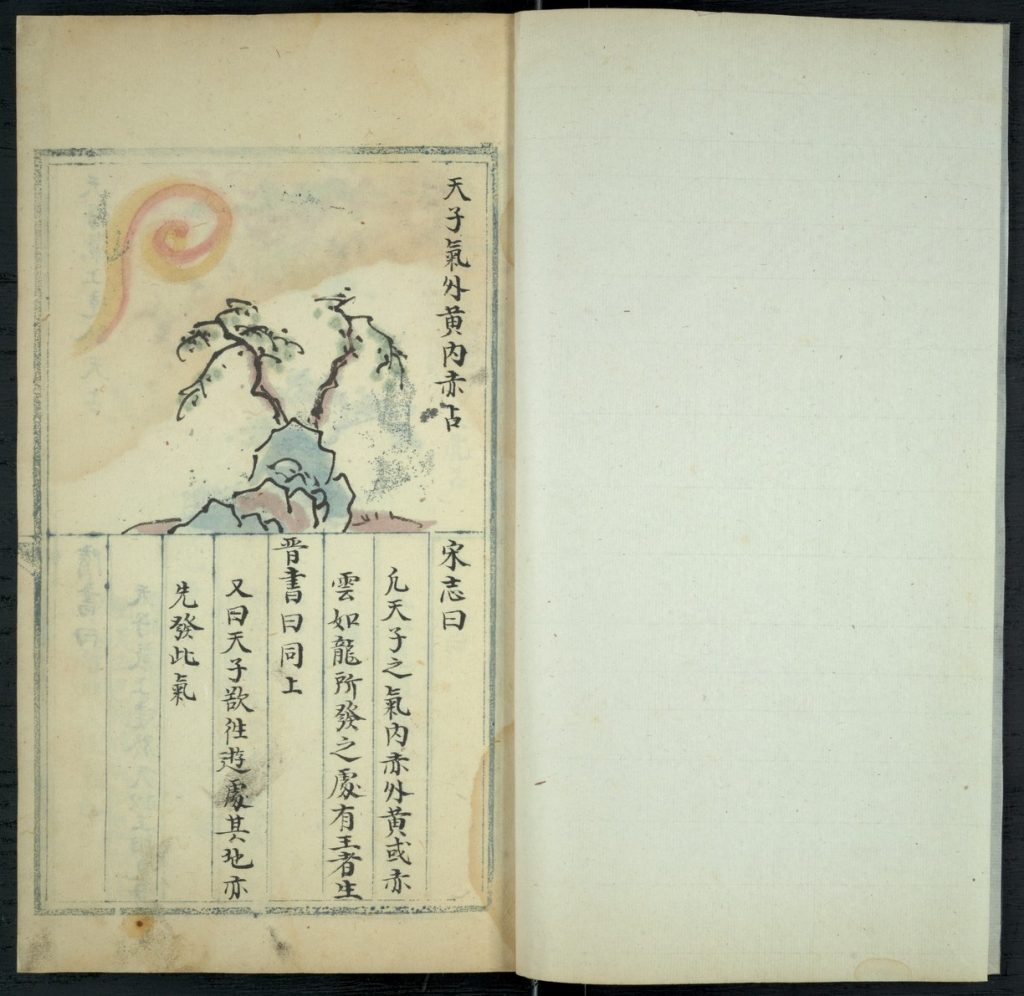 天子氣外黃內赤占
宋志曰
凢天子之氣內赤外黃或赤
雲如龍所發之處有王者生
晋書曰同上
又曰天子欲徃遊處其地亦
先發此氣